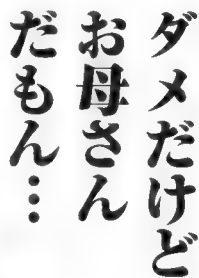 ダメだけど
お母さん
だもん…